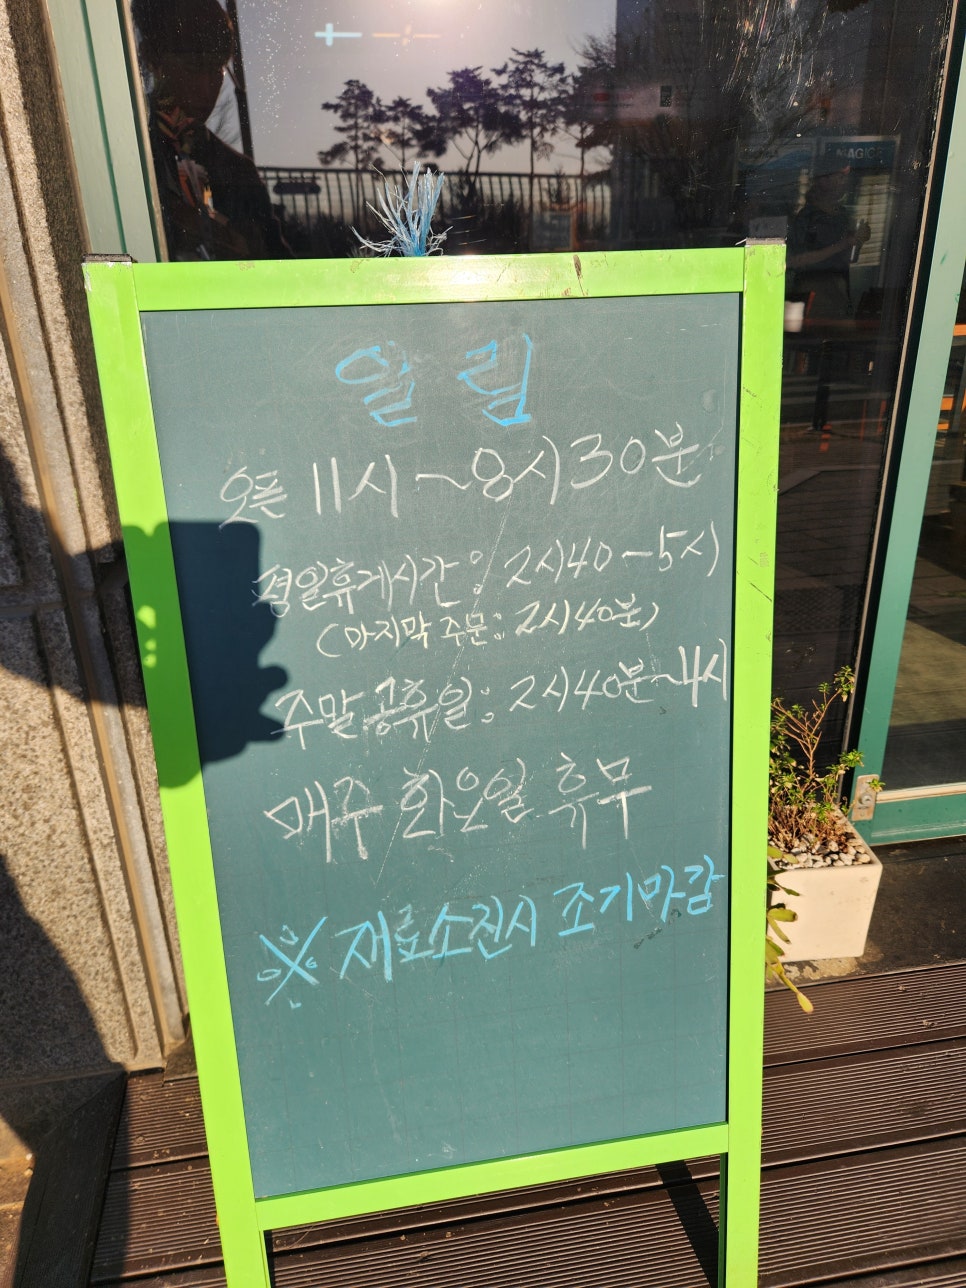 알림
오픈 11시~8시30분
평일휴게시간: 2시40-5시
(마지막 주문: 2시40분)
주말공휴일: 2시40분~4시
매주 화요일 휴무
※ 재료소진시 조기마감